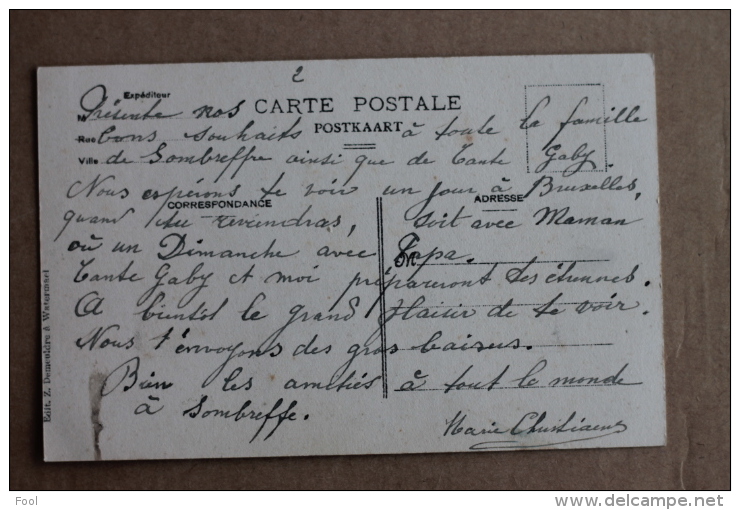 2
Expéditeur
CARTE POSTALE
POSTKAART
M
Rue
Ville
CORRESPONDANCE
ADRESSE
M
Présente nos
bons souhaits à toute la famille
de Sombreffe ainsi que de Tante Gaby.
Nous espérons te voir un jour à Bruxelles,
quand tu reviendras, soit avec Maman
où un Dimanche avec Papa.
Tante Gaby et moi prépareront tes étrennes.
A bientot le grand plaisir de te voir.
Nous t'envoyons des gros baisers.
Bien les amitiés à tout le monde
à Sombreffe.
Marie Christiaens
Edit. Z. Demeuldre à Watermael
Fool
http://www.delcampe.net